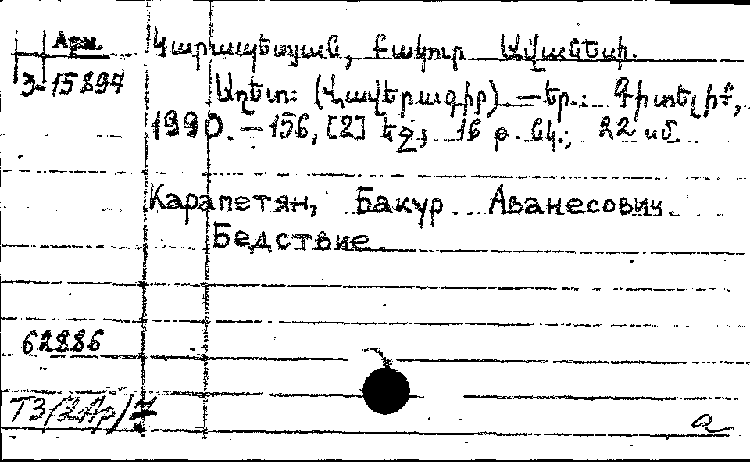 Арм.
3-15894
Կարապետյան, Բակուր Ավանեսի.
Աղետ: (Վավերագիր). — Եր.: Գիտելիք,
1990. — 156, [2] եջ, 16 թ. նկ.; 22 սմ.
Карапетян, Бакур Аванесович.
Бедствие.
62886
Т3(2Ар)7
а